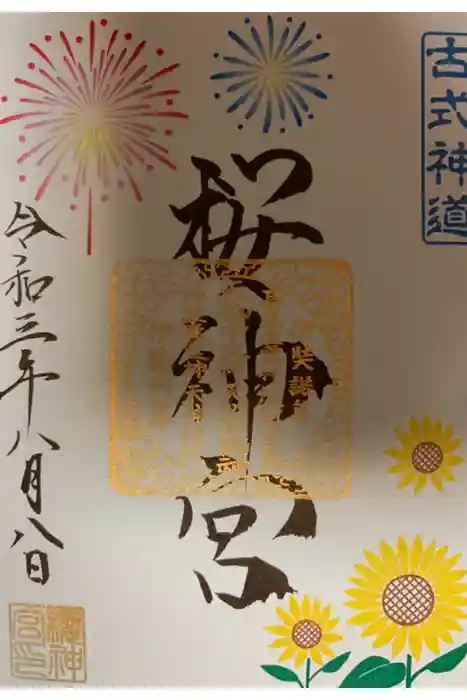 古式神道
桜神宮
令和三年八月八日